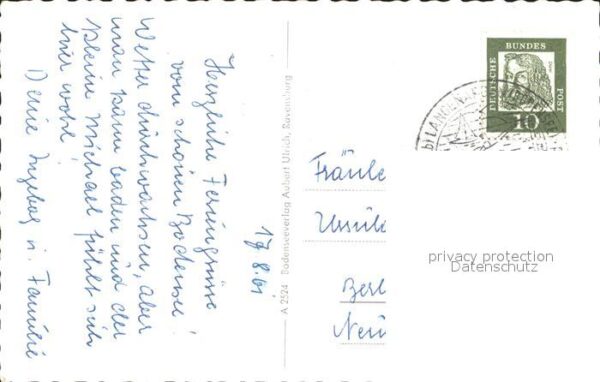 17.8.61
Herzliche Feriengrüsse
vom schönen Bodensee!
Wetter durchwachsen, aber
man kann baden und der
kleine Michael fühlt sich
hier wohl!
Deine Ingeborg u. Familie
A 2524 Bodenseeverlag Aubert Ulrich, Ravensburg
DEUTSCHE BUNDES POST
10
LANGEN
Fräule
Ursule
Berl
Neu
privacy protection
Datenschutz